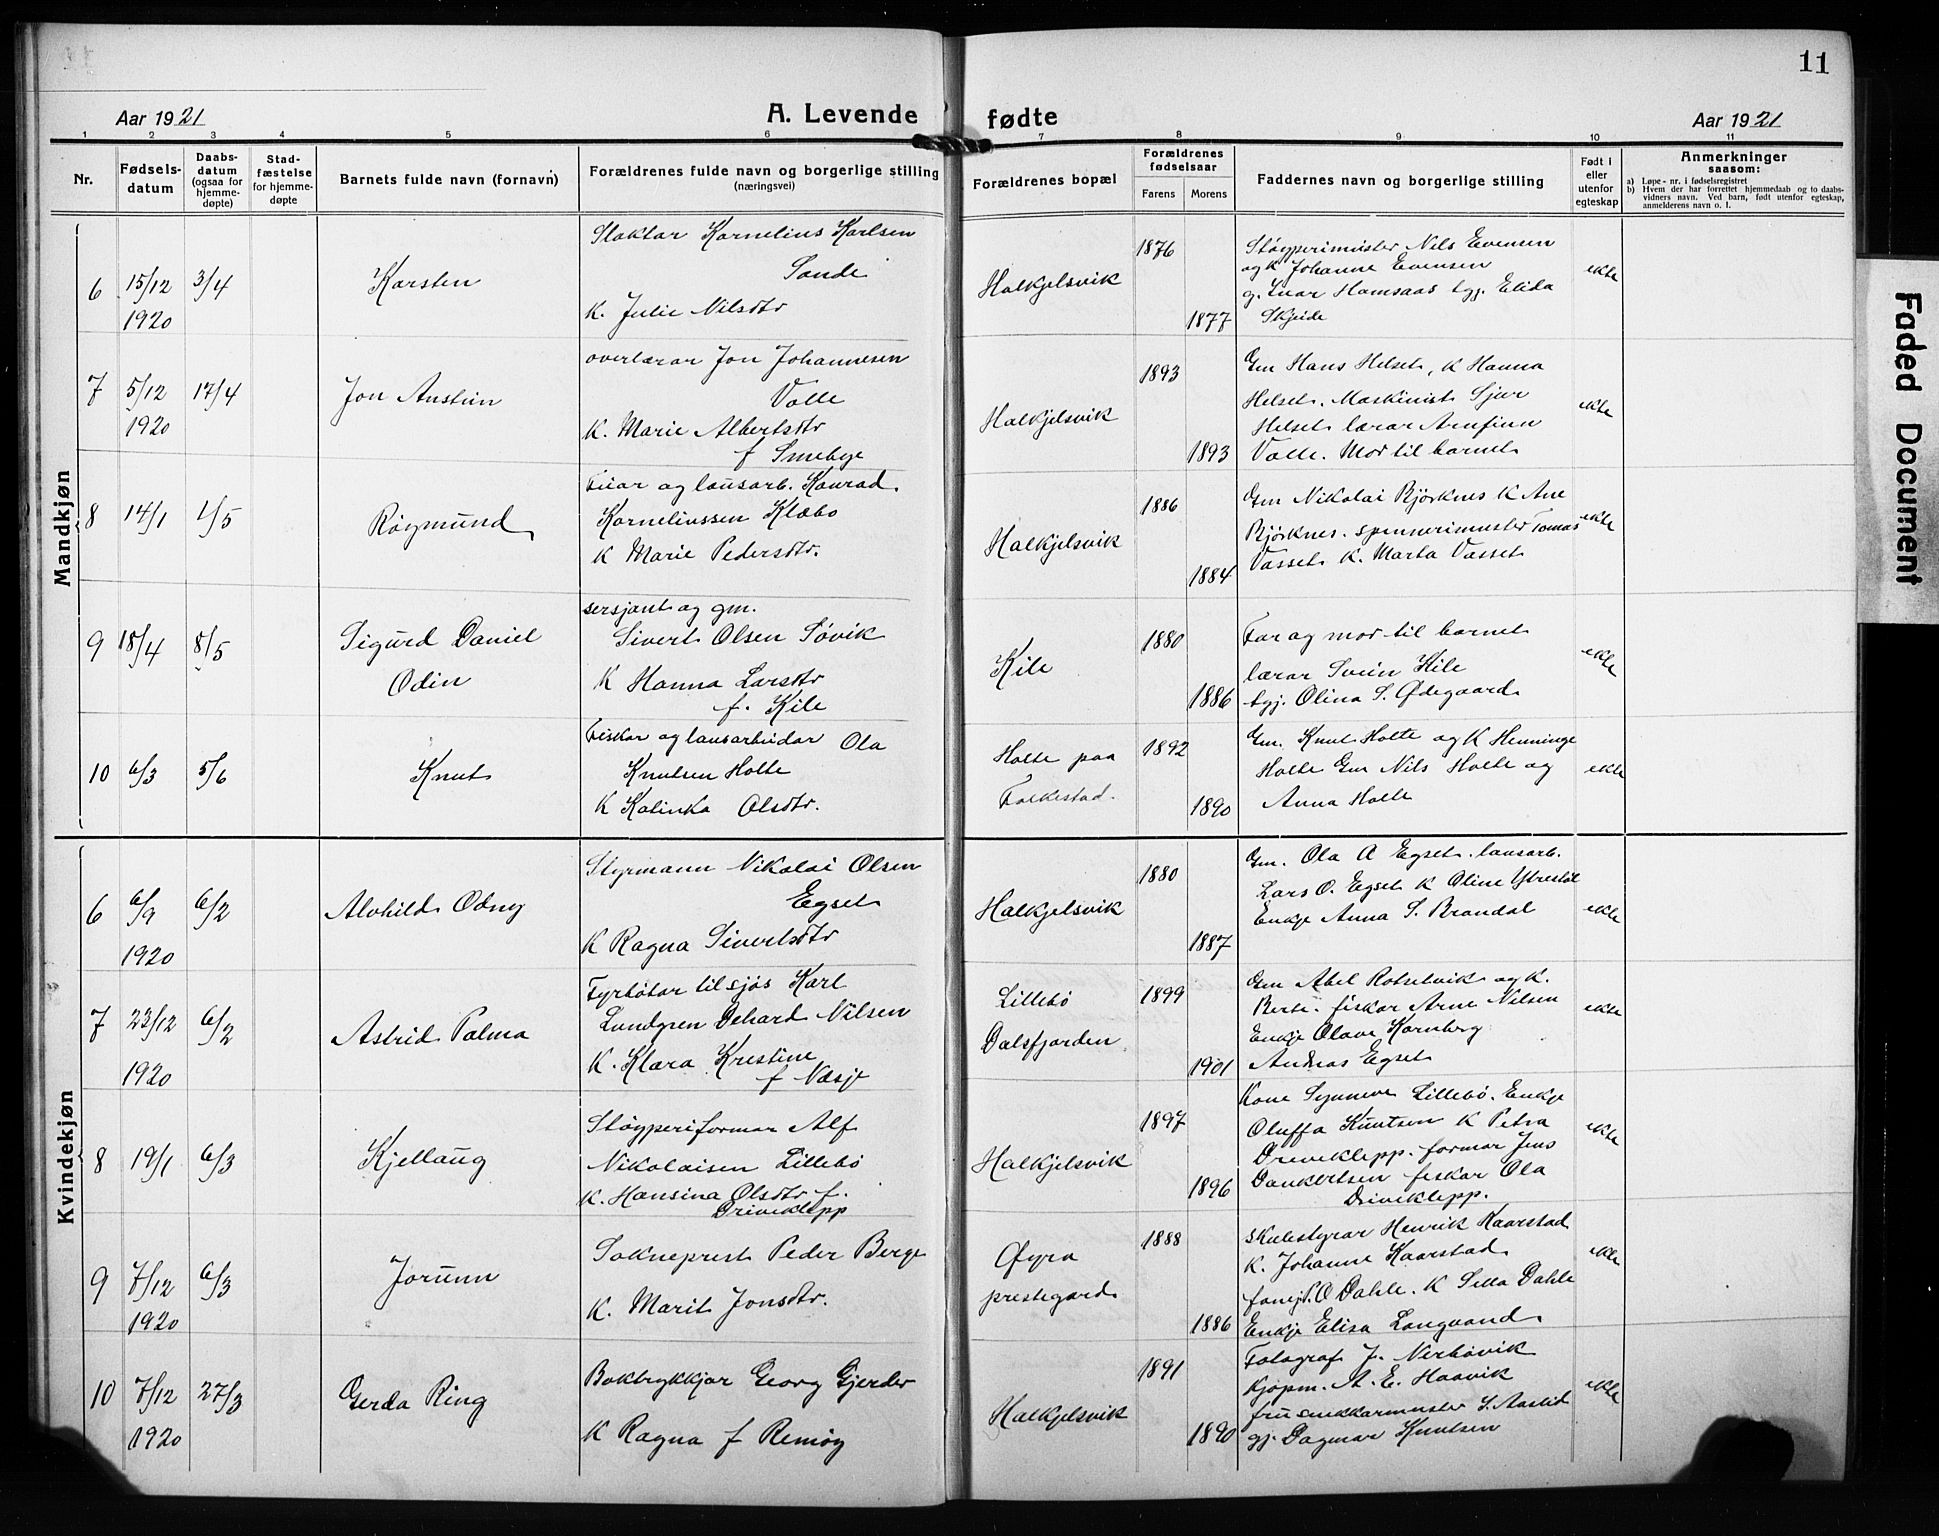 11
Aar 1921
A. Levende fødte
Aar 1921
1 2 3 4 5 6 7 8 9 10 11
Nr.
Fødsels-
datum
Daabs-
datum
(ogsaa for
hjemme-
døpte)
Stad-
fæstelse
for hjemme-
døpte
Barnets fulde navn (fornavn)
Forældrenes fulde navn og borgerlige stilling
(næringsvei)
Forældrenes bopæl
Forældrenes
fødselsaar
Farens Morens
Faddernes navn og borgerlige stilling
Født i
eller
utenfor
egteskap
Anmerkninger
saasom:
a) Løpe-nr. i fødselsregistret
b) Hvem der har forrettet hjemmedaab og to daabs-
vidners navn. Ved barn, født utenfor egteskap,
anmelderens navn o. l.
Faded Document
Mandkjøn
6 15/12 1920 3/4
Karsten
Slaktar Kornelius Karlsen
Sande
K. Julie Nilsdtr
Halkjelsvik
1876
1877
Støyperimeister Nils Evensen
og K Johanne Evensen
g. Ivar Hamsaas tyj. Elida
Skjeide
ekte
7 5/12 1920 17/4
Jon Austein
overlærar Jon Johannesen
Valle
K. Marie Albertsdtr
f Smebye
Halkjelsvik
1893
1893
Gm Hans Helset, K Hanna
Helset. Maskinist Sjur
Helset lærar Arnfinn
Valle. Mor til barnet
ekte
8 14/1 1/5
Røymund
Fiiar og lausarb. Konrad
Korneliussen Klæbo
K Marie Pedersdtr.
Halkjelsvik
1886
1884
Gm Nikolai Bjørknes K Ane
Bjørknes. spennerimeister Tomas
Vasset K. Marta Vasset
ekte
9 18/4 8/5
Sigurd Daniel
Odin
sersjant og gm.
Sivert Olsen Søvik
K Hanna Larsdtr
f. Kile
Kile
1880
1886
Far og mor til barnet
lærar Svein Kile
tyj. Olina S. Ødegaard
ekte
10 6/3 5/6
Knut
Fiskar og lausarbeidar Ola
Knutsen Holte
K Kalinka Olsdtr.
Holte paa
Folkestad.
1892
1890
Gm. Knut Holte og K Henninge
Holte Gm Nils Holte og
Anna Holte
ekte
Kvindekjøn
6 6/9 1920 6/2
Alvhild Odny
Styrmann Nikolai Olsen
Egset
K Ragna Sivertsdtr
Halkjelsvik
1880
1887
Gm. Ola A Egset. lausarb.
Lars O. Egset K Oline Ytrestøl
Enkje Anna S. Brandal
ekte
7 23/12 1920 6/2
Astrid Palma
Fyrbøtar til sjøs Karl
Lundgren Dehard Nilsen
K. Klara Kristine
f Næsje
Lillebø
Dalsfjorden
1899
1901
Gm Abel Rotsetvik og K.
Berte. fiskar Arne Nilsen
Enkje Olave Kornberg
Andreas Egset
ekte
8 19/1 6/3
Kjellaug
Støyperiformar Alf
Nikolaisen Lillebø
K. Hansina Olsdtr f.
Driveklepp
Halkjelsvik
1897
1896
Kone Synneve Lillebø. Enkje
Oluffa Knutsen K Petra
Driveklepp. formar Jens
Dankertsen fiskar Ola
Driveklepp.
ekte
9 7/12 1920 6/3
Jorunn
Sokneprest Peder Berge
K. Marit Jonsdtr.
Øyra
prestegard
1888
1886
skulestyrar Henrik Kaarstad
K. Johanne Kaarstad
fanejr. O Dahle. K Silla Dahle
Enkje Elisa Langvand
ekte
10 7/12 1920 27/3
Gerda Ring
Boktrykkjar Georg Gjerder
K Ragna f Remøy
Halkjelsvik
1891
1890
Fotograf J. Nerbøvik
Kjøpm. A. E. Haavik
fru snikkarmeister S. Aastad
gj. Dagmar Knutsen
ekte